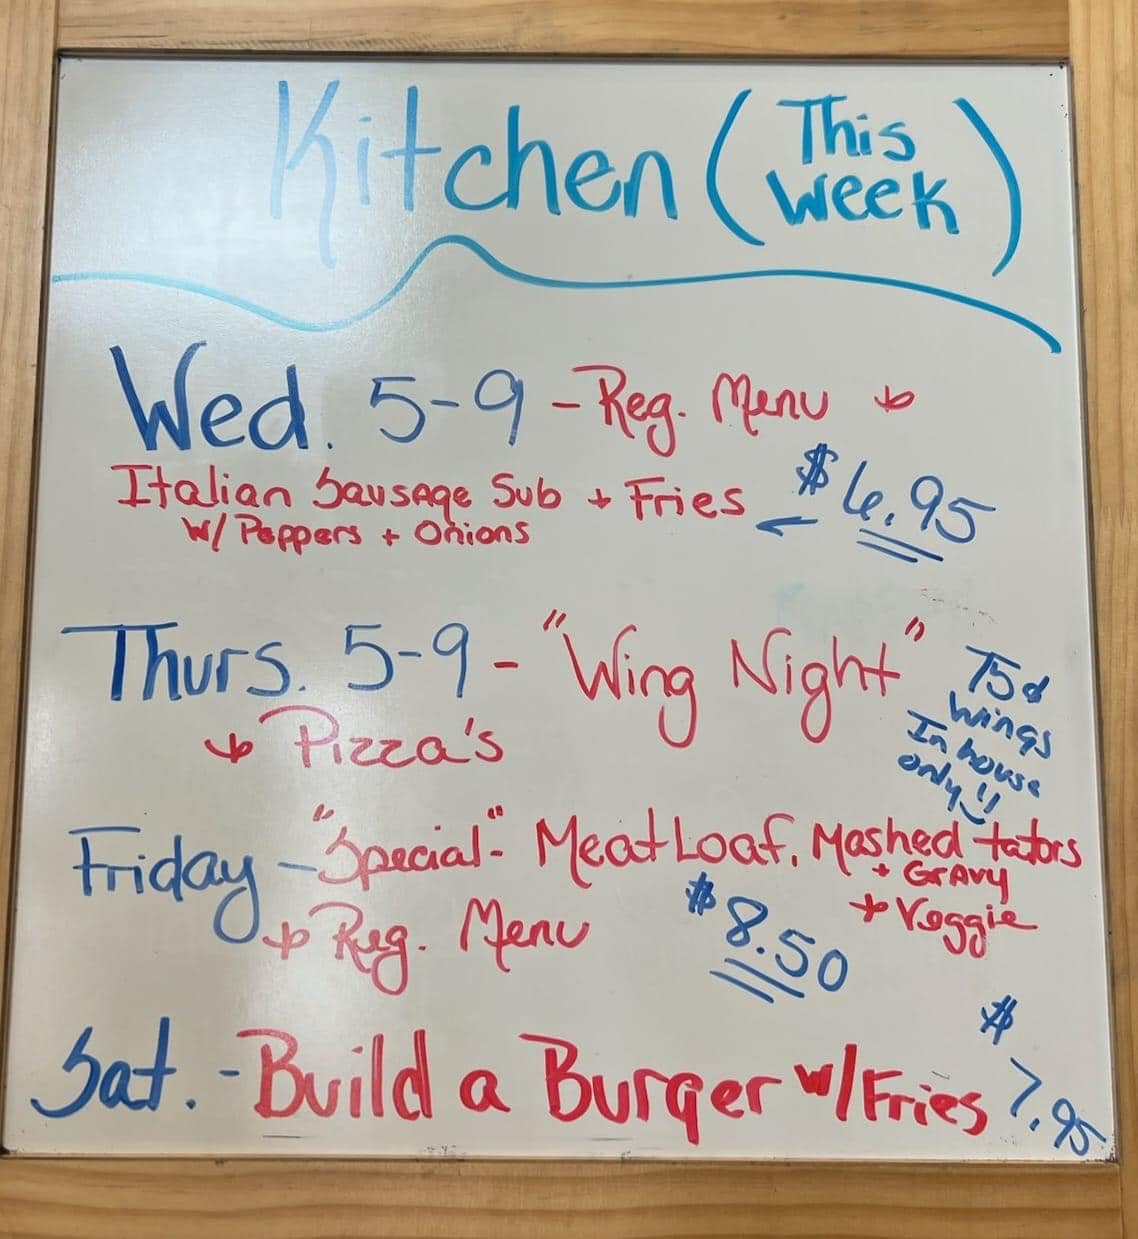 Kitchen (This Week)
Wed. 5-9 - Reg. Menu +
Italian Sausage Sub + Fries $6.95
w/ Peppers + Onions
Thurs. 5-9 - "Wing Night"
75¢ wings
In house
only!!
+ Pizza's
Friday - "Special" - Meat Loaf, Mashed tators
+ Gravy
+ Veggie
$8.50
+ Reg. Menu
Sat. - Build a Burger w/ Fries $7.95